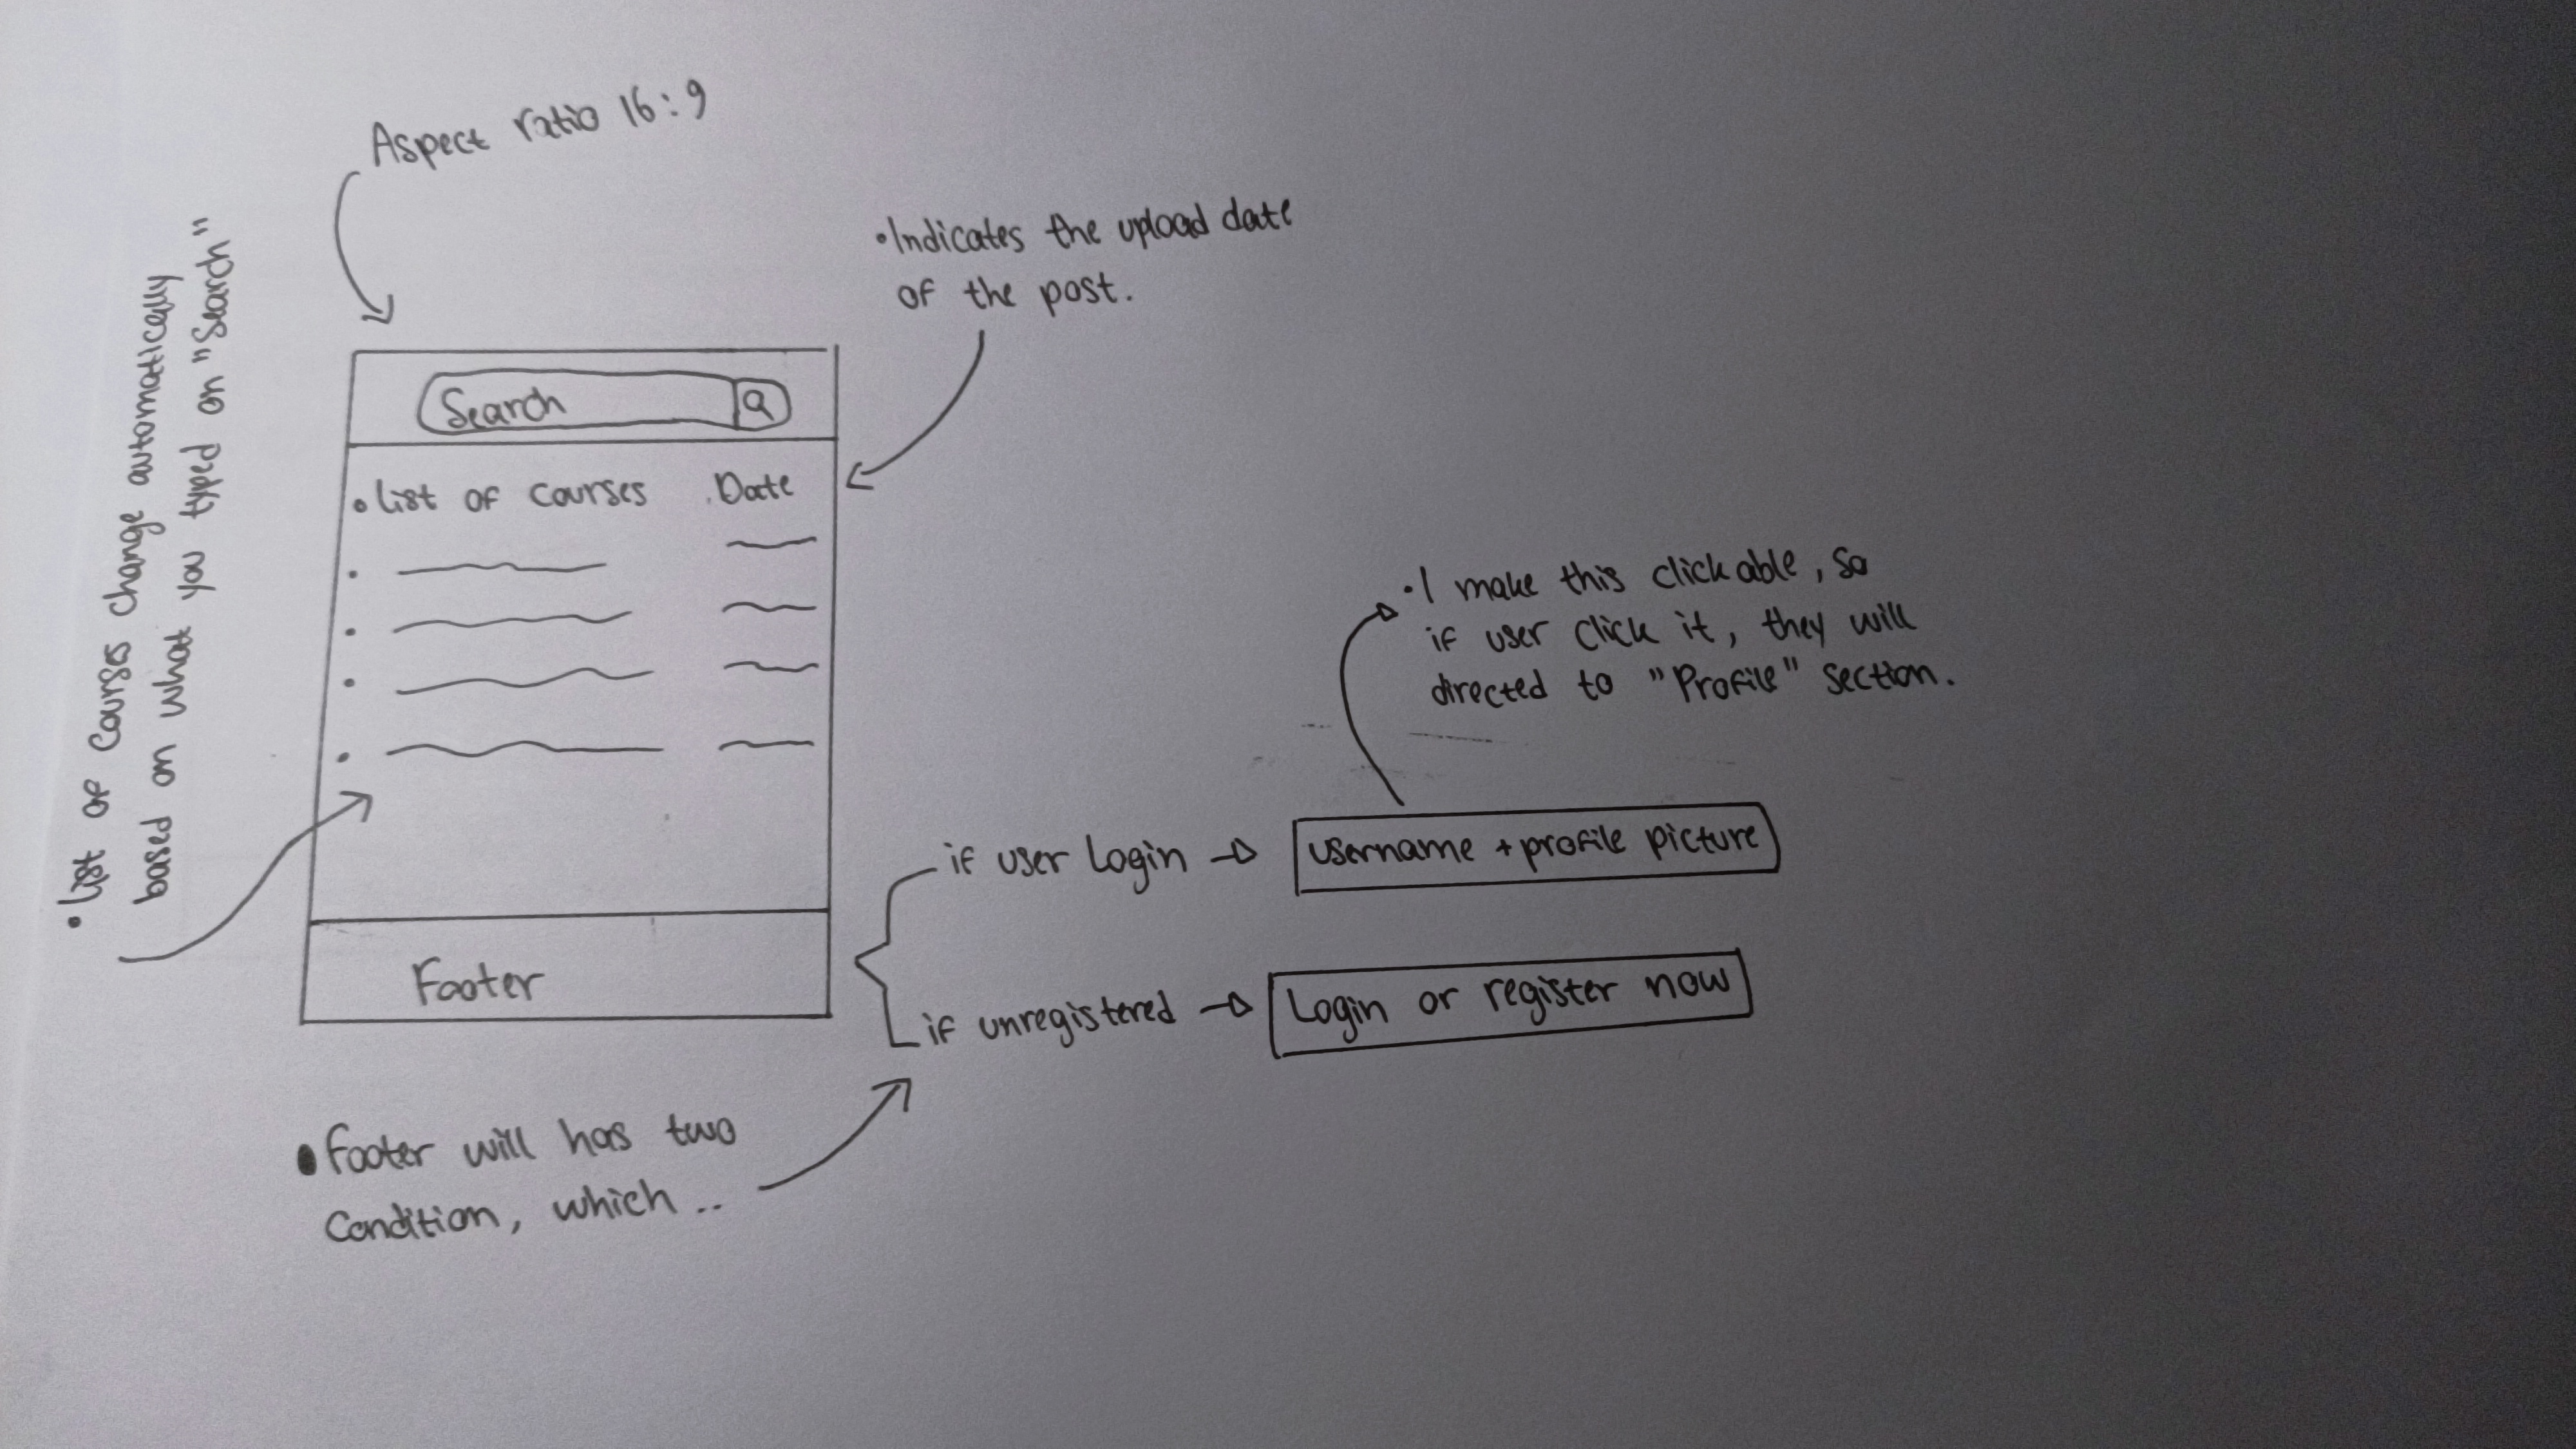 Aspect ratio 16:9
• Indicates the upload date
of the post.
• List of Courses change automatically
based on what you typed on "Search"
Search
• List of courses
Date
Footer
• I make this clickable, so
if user click it, they will
directed to "Profile" section.
if user Login →
username + profile picture
if unregistered →
Login or register now
• Footer will has two
Condition, which ..